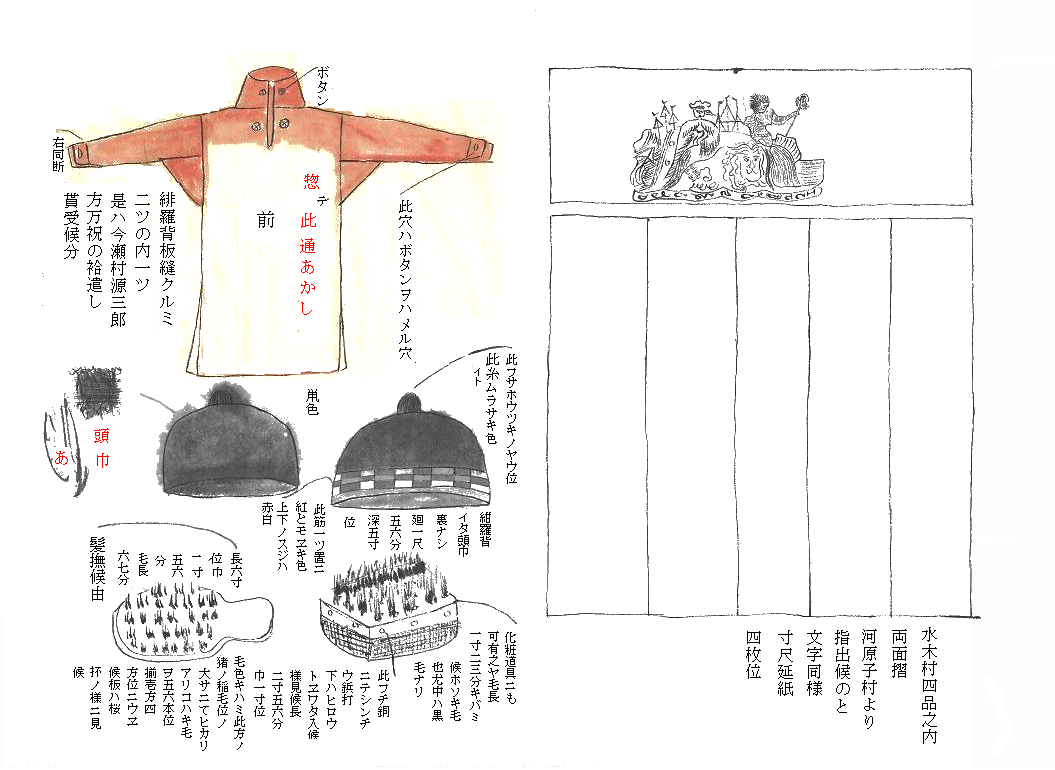 水木村四品之内
両面摺
河原子村より
指出候のと
文字同様
寸尺延紙
四枚位
ボタン
右同断
惣
テ
此通あかし
前
此穴ハボタンヲハメル穴
緋羅背板縫クルミ
二ツの内一ツ
是ハ今瀬村源三郎
方万祝の袷遣し
貰受候分
此フサホウツキノヤウ位
此糸ムラサキ色
イト
鼡色
頭巾
あ
緋羅背
イタ頭巾
裏ナシ
廻一尺
五六分
深五寸
位
此筋一ツ置ニ
紅とモヱキ色
上下ノスジハ
赤白
長六寸
位巾
一寸
五六
分
毛長
六七分
髪撫候由
化粧道具ニも
可有之ヤ毛長
一寸二三分キバミ
候ホソキ毛
也尤中ハ黒
毛ナリ
此フチ銅
ニテシンチ
ウ鋲打
下ハヒロウ
トヱワタ入候
様見候長
二寸五六分
巾一寸位
毛色キハミ此方ノ
猪ノ稲毛位ノ
大サニてヒカリ
アリコハキ毛
ヲ五六本位
揃壱方四
方位ニウヱ
候板ハ桜
抔ノ様ニ見
候